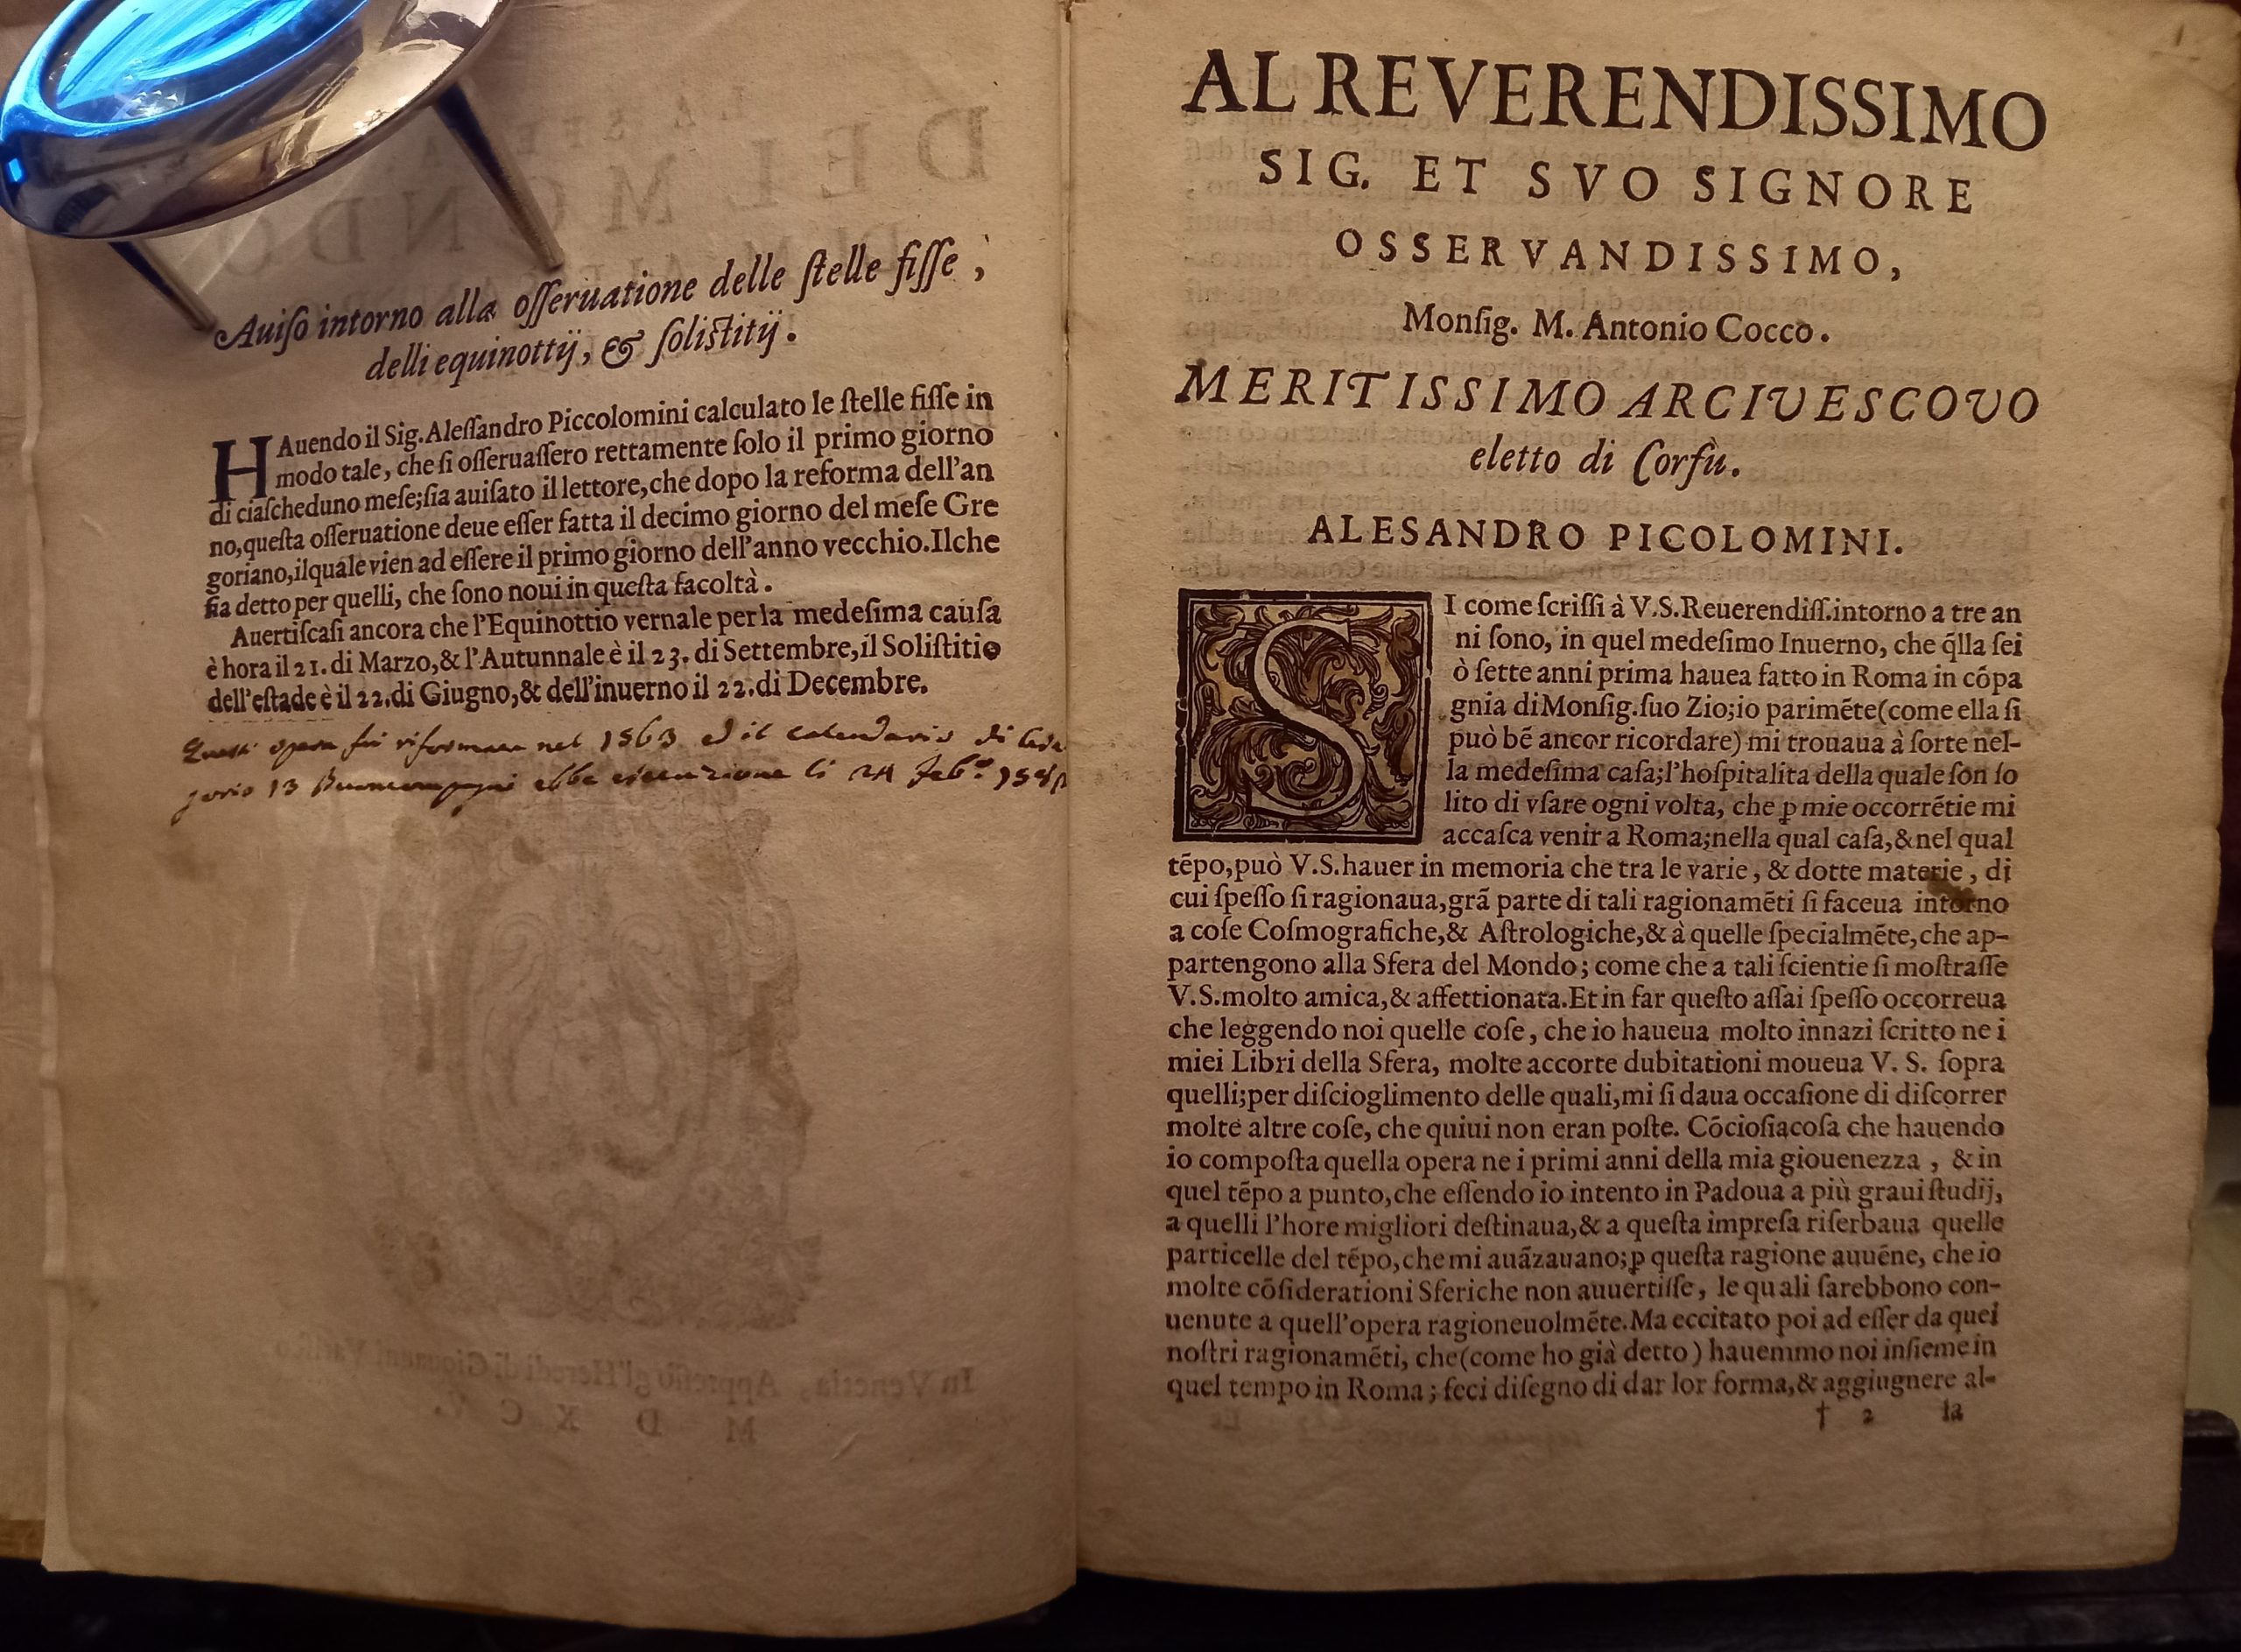 Auiſo intorno alla oſſeruatione delle ſtelle fiſſe,
delli equinottij, & ſoliſtitij.
HAuendo il Sig. Aleſſandro Piccolomini calculato le ſtelle fiſſe in
modo tale, che ſi oſſeruaſſero rettamente ſolo il primo giorno
di ciaſcheduno meſe; ſia auiſato il lettore, che dopo la reforma dell'an
no, queſta oſſeruatione deue eſſer fatta il decimo giorno del meſe Gre
goriano, ilquale vien ad eſſere il primo giorno dell'anno vecchio. Ilche
ſia detto per quelli, che ſono noui in queſta facoltà.
Auertiſcaſi ancora che l'Equinottio vernale per la medeſima cauſa
è hora il 21. di Marzo, & l'Autunnale è il 23. di Settembre, il Soliſtitio
dell'eſtade è il 22. di Giugno, & dell'inuerno il 22. di Decembre.
opera fu riformata nel 1563 ed il calendario di
gorio 13 Buoncompagni ebbe esecuzione li 24 Feb.º
In Venetia, Appreſſo gl'Heredi di Giouanni Variſco
M D X C V.
AL REVERENDISSIMO
SIG. ET SVO SIGNORE
OSSERVANDISSIMO,
Monſig. M. Antonio Cocco.
MERITISSIMO ARCIVESCOVO
eletto di Corfù.
ALESANDRO PICOLOMINI.
SI come ſcriſſi à V.S. Reuerendiſſ. intorno a tre an
ni ſono, in quel medeſimo Inuerno, che q̃lla ſei
ò ſette anni prima hauea fatto in Roma in cõpa
gnia di Monſig. ſuo Zio; io parimẽte (come ella ſi
può bẽ ancor ricordare) mi trouaua à ſorte nel-
la medeſima caſa; l'hoſpitalita della quale ſon ſo
lito di vſare ogni volta, che ꝑ mie occorrẽtie mi
accaſca venir a Roma; nella qual caſa, & nel qual
tẽpo, può V.S. hauer in memoria che tra le varie, & dotte materie, di
cui ſpeſſo ſi ragionaua, grã parte di tali ragionamẽti ſi faceua intorno
a coſe Coſmografiche, & Aſtrologiche, & à quelle ſpecialmẽte, che ap-
partengono alla Sfera del Mondo; come che a tali ſcientie ſi moſtraſſe
V.S. molto amica, & affettionata. Et in far queſto aſſai ſpeſſo occorreua
che leggendo noi quelle coſe, che io haueua molto innazi ſcritto ne i
miei Libri della Sfera, molte accorte dubitationi moueua V. S. ſopra
quelli; per diſcioglimento delle quali, mi ſi daua occaſione di diſcorrer
molte altre coſe, che quiui non eran poſte. Cõcioſiacoſa che hauendo
io compoſta quella opera ne i primi anni della mia giouenezza, & in
quel tẽpo a punto, che eſſendo io intento in Padoua a più graui ſtudij,
a quelli l'hore migliori deſtinaua, & a queſta impreſa riſerbaua quelle
particelle del tẽpo, che mi auãzauano; ꝑ queſta ragione auuẽne, che io
molte cõſiderationi Sferiche non auuertiſſe, le quali ſarebbono con-
uenute a quell'opera ragioneuolmẽte. Ma eccitato poi ad eſſer da quei
noſtri ragionamẽti, che (come ho già detto) hauemmo noi inſieme in
quel tempo in Roma; feci diſegno di dar lor forma, & aggiugnere al-
† 2 la